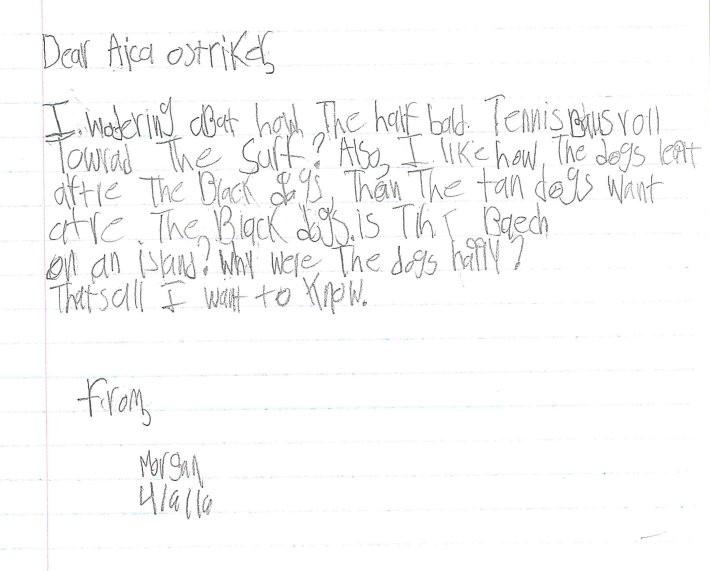 Dear Aica ostriker,
I. wodering abat how The half bald. Tennis Baus roll
Towrad The Surf? Also, I like how The dogs leatt
aftre The Black dogs, Than The tan dogs want
atre. The Black dogs. is Tihr Baech
on an island? Why were The dogs haffy?
Thatsall I want to know.
From,
Morgan